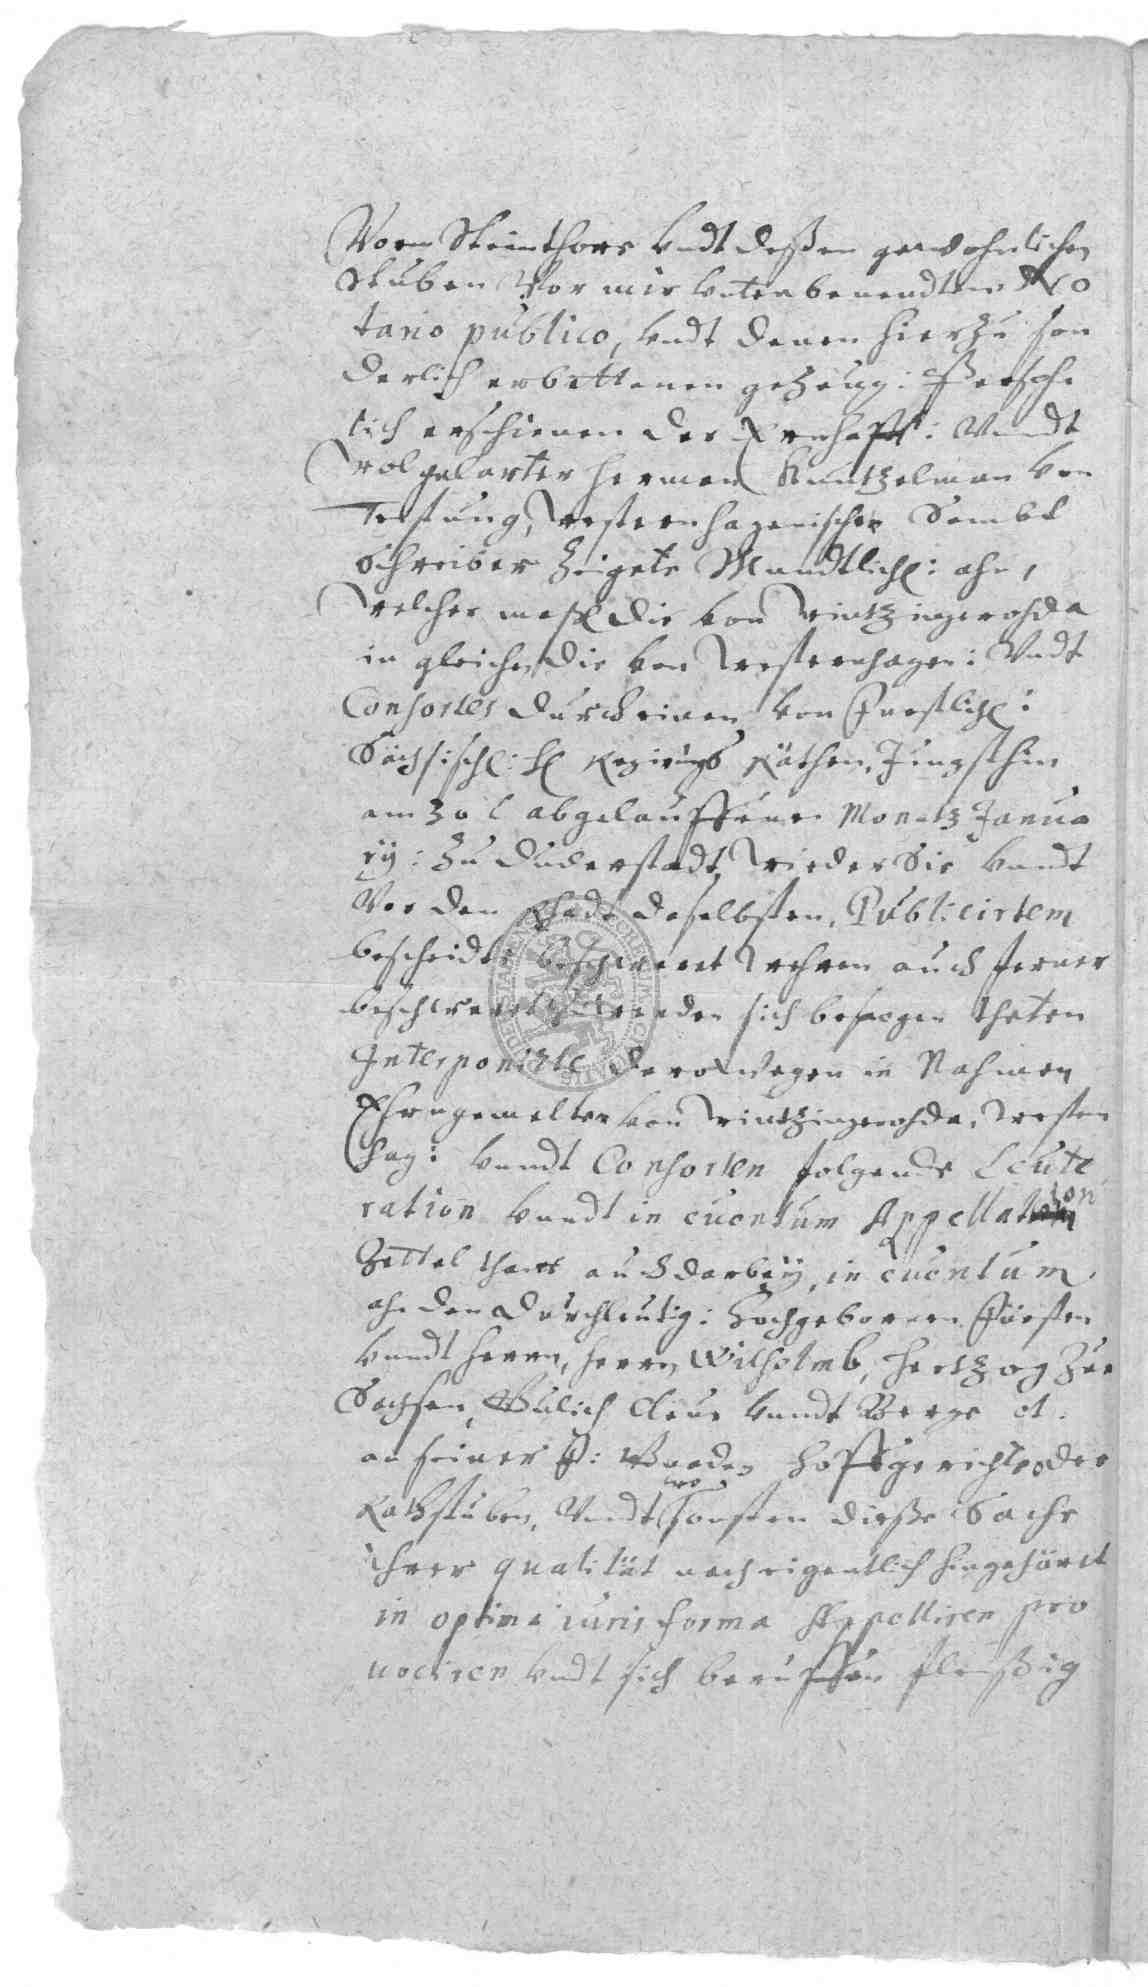 Vorm Steinthore vndt deßen gewohnlichen
Stuben Vor mir vntenbenendten No
tario publico, vndt denen hierzu son
derlich erbettenen gezeug: Persohn
lich erschienen der Ernhafft: Vnndt
Wolgelarter Herman Kuntzelman von
Teistung, Westernhagenischer Sambt
Schreiber Zeigete Mundtlich: ahn,
Welcher maß die von Wintzingerohda
in gleichen die von Westernhagen: Vndt
Consortes durch einen von Furstlich:
Sächsisch: Regirungs Räthen, Jungsthin
am 30 t abgelauffenen Monatz Janua
rij: Zu Duderstadt, Wieder Sie vnndt
Vor den Rhadt daselbsten, Publicirtem
bescheidt beschweret Wehren auch ferner
beschweret zu werden sich besorgen theten
Interponirte derowegen in Nahmen
Ehrngemelter von Wintzingerohda, Western
hag: vnndt Consorten folgende Leute
ration vnndt in euentum Appellation
Zettel thete auch darbeÿ, in euentum,
ahn den Durchleutig: Hochgebornen Fürsten
vnndt Herrn, Herrn Wilhelmb, Hertzog Zue
Sachsen, Gülich Cleue vnndt Berge et.
an seiner F: Gnaden Hoffgericht oder
Rathstuben, Vndt wo sonsten dieße Sache
ihrer qualität nach eigentlich hingehöret
in optima iuris forma Appelliren pro
uociren vndt sich beruffen fleißig